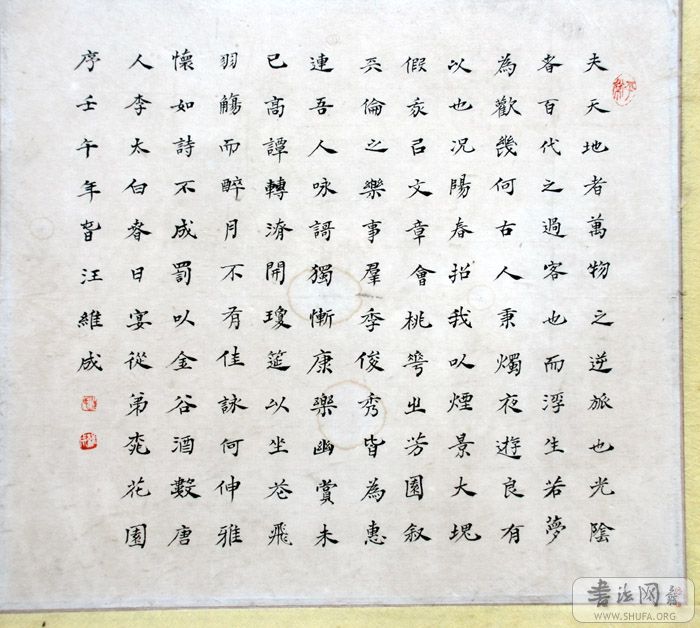 夫天地者萬物之逆旅也光陰
者百代之過客也而浮生若夢
為歡幾何古人秉燭夜遊良有
以也況陽春招我以煙景大塊
假我以文章會桃花之芳園叙
天倫之樂事羣季俊秀皆為惠
連吾人咏謌獨慚康樂幽賞未
已高譚轉清開瓊筵以坐花飛
羽觴而醉月不有佳詠何伸雅
懷如詩不成罰以金谷酒數唐
人李太白春日宴從弟桃花園
序壬午年春汪維成
书法网
WWW.SHUFA.ORG